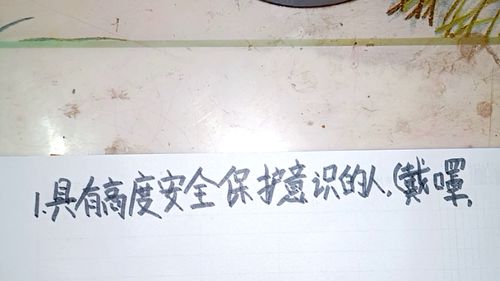 1.具有高度安全保护意识的人,(戴嘿,